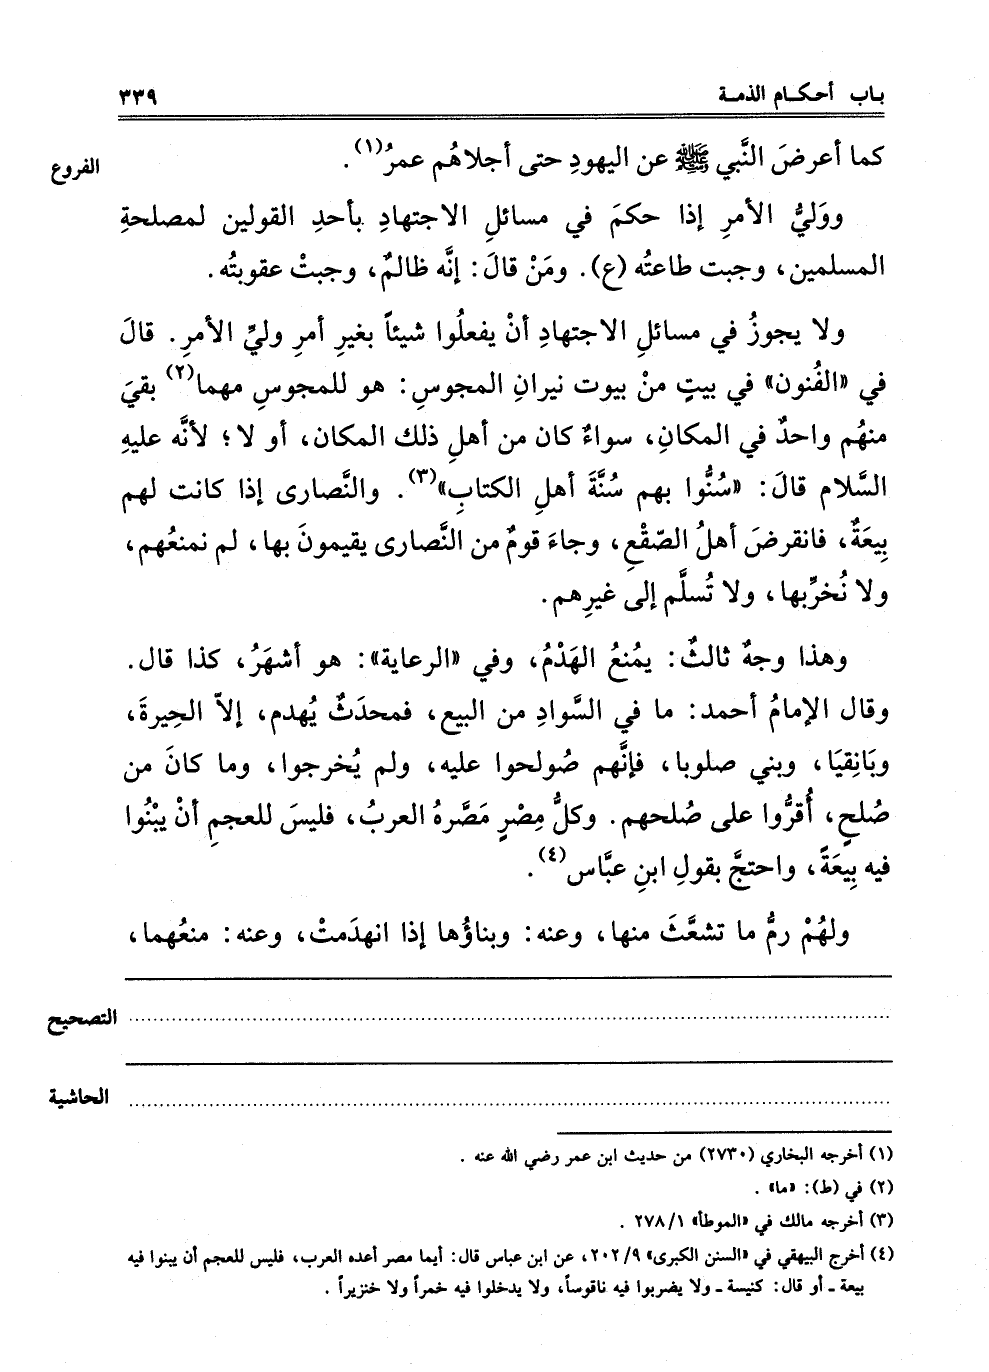 باب أحكام الذمة ٣٣٩
كما أعرضَ النَّبي ﷺ عن اليهودِ حتى أجلاهُم عمرُ(١).
الفروع
ووَليُّ الأمرِ إذا حكمَ في مسائلِ الاجتهادِ بأحدِ القولين لمصلحةِ
المسلمين، وجبت طاعتُه (ع). ومَنْ قالَ: إنَّه ظالمٌ، وجبتْ عقوبتُه.
ولا يجوزُ في مسائلِ الاجتهادِ أنْ يفعلُوا شيئاً بغيرِ أمرِ وليِّ الأمرِ. قالَ
في «الفُنون» في بيتٍ منْ بيوت نيرانِ المجوسِ: هو للمجوسِ مهما(٢) بقيَ
منهُم واحدٌ في المكانِ، سواءٌ كان من أهلِ ذلك المكان، أو لا؛ لأنَّه عليهِ
السَّلام قالَ: «سُنُّوا بهم سُنَّةَ أهلِ الكتابِ»(٣). والنَّصارى إذا كانت لهم
بِيعَةٌ، فانقرضَ أهلُ الصّقْعِ، وجاءَ قومٌ من النَّصارى يقيمونَ بها، لم نمنعُهم،
ولا نُخرِّبها، ولا تُسلَّم إلى غيرِهم.
وهذا وجهٌ ثالثٌ: يمُنعُ الهَدْمُ، وفي «الرعاية»: هو أشهَرُ، كذا قال.
وقال الإمامُ أحمد: ما في السَّوادِ من البيع، فمحدَثٌ يُهدم، إلاّ الحِيرةَ،
وبَانِقيَا، وبني صلوبا، فإنَّهم صُولحوا عليه، ولم يُخرجوا، وما كانَ من
صُلحٍ، أُقرُّوا على صُلحهم. وكلُّ مِصْرٍ مَصَّرهُ العربُ، فليسَ للعجمِ أنْ يبْنُوا
فيه بِيعَةً، واحتجَّ بقولِ ابنِ عبَّاس(٤).
ولهُمْ رمُّ ما تشعَّثَ منها، وعنه: وبناؤُها إذا انهدَمتْ، وعنه: منعُهما،
التصحيح
الحاشية
(١) أخرجه البخاري (٢٧٣٠) من حديث ابن عمر رضي الله عنه .
(٢) في (ط): «ما» .
(٣) أخرجه مالك في «الموطأ» ٢٧٨/١ .
(٤) أخرج البيهقي في «السنن الكبرى» ٢٠٢/٩، عن ابن عباس قال: أيما مصر أعده العرب، فليس للعجم أن يبنوا فيه
بيعة ـ أو قال: كنيسة ـ ولا يضربوا فيه ناقوساً، ولا يدخلوا فيه خمراً ولا خنزيراً .